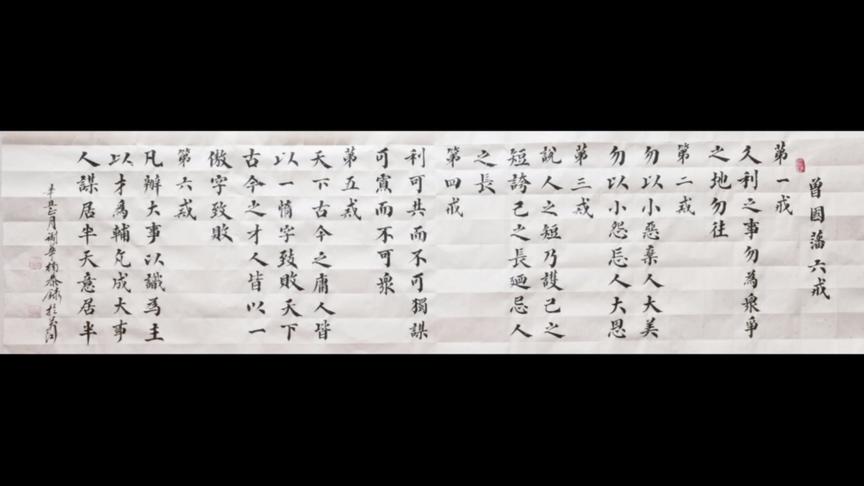 曾国藩六戒
第一戒
久利之事勿為衆爭
之地勿往
第二戒
勿以小惡棄人大美
勿以小怨忘人大恩
第三戒
說人之短乃護己之
短誇己之長廼忌人
之長
第四戒
利可共而不可獨謀
可寡而不可衆
第五戒
天下古今之庸人皆
以一惰字致敗天下
古今之才人皆以一
傲字致敗
第六戒
凡辦大事以識為主
以才為輔凡成大事
人謀居半天意居半
辛丑正月